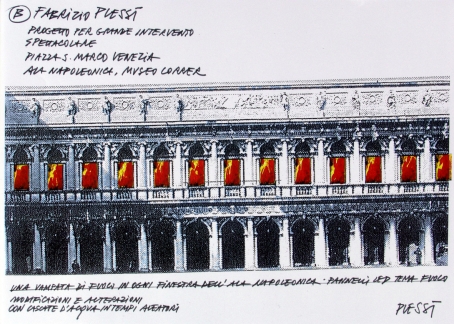 Ⓑ FABRIZIO PLESSI
PROGETTO PER GRANDE INTERVENTO
SPETTACOLARE
PIAZZA S. MARCO VENEZIA
ALA NAPOLEONICA, MUSEO CORRER
UNA VAMPATA DI FUOCO IN OGNI FINESTRA DELL'ALA NAPOLEONICA. PANNELLI LED TEMA FUOCO
MODIFICAZIONI E ALTERAZIONI
CON CASCATE D'ACQUA IN TEMPI ALEATORI
PLESSI